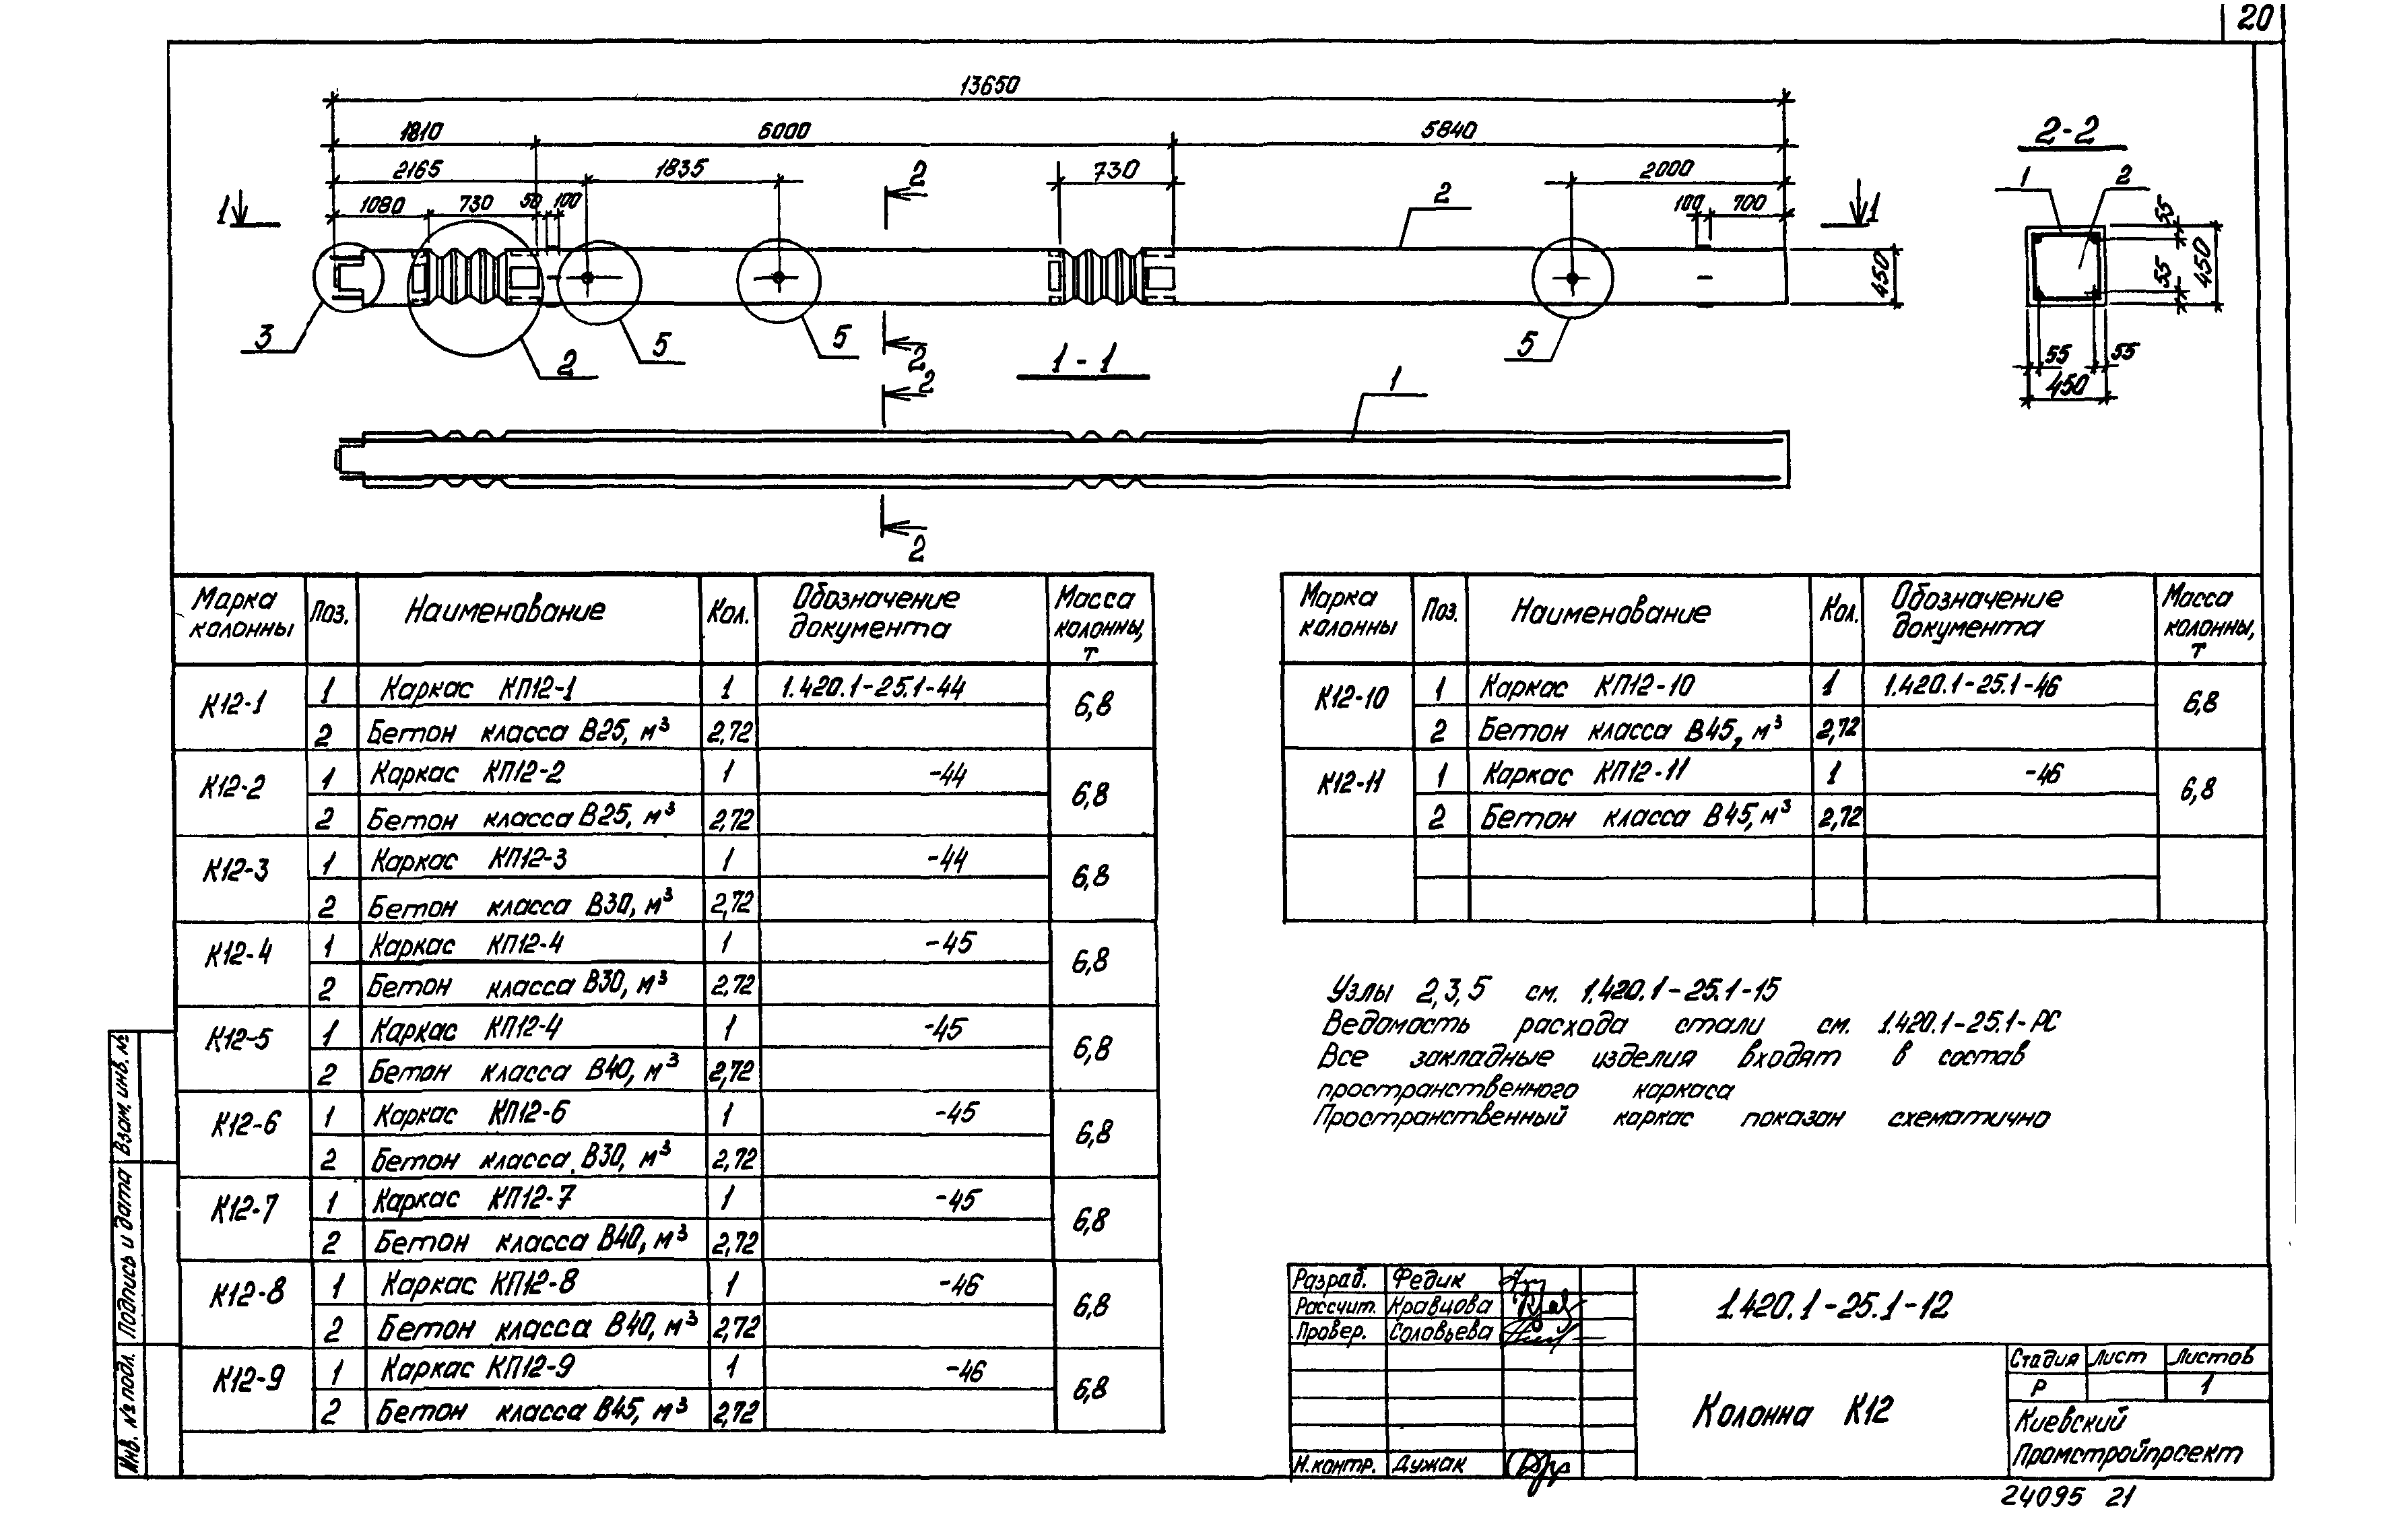 20
13650
1810 6000 5840
2165 1835 2 730 2000
1 1080 730 50 100 2 100 700 1
450
3 2 5 5 2 5
2-2
1 2
55
450
55
55 55
450
1-1
2
1
2
Марка колонны Поз. Наименование Кол. Обозначение документа Масса колонны, т
К12-1 1 Каркас КП12-1 1 1.420.1-25.1-44 6,8
2 Бетон класса В25, м³ 2,72
К12-2 1 Каркас КП12-2 1 -44 6,8
2 Бетон класса В25, м³ 2,72
К12-3 1 Каркас КП12-3 1 -44 6,8
2 Бетон класса В30, м³ 2,72
К12-4 1 Каркас КП12-4 1 -45 6,8
2 Бетон класса В30, м³ 2,72
К12-5 1 Каркас КП12-4 1 -45 6,8
2 Бетон класса В40, м³ 2,72
К12-6 1 Каркас КП12-6 1 -45 6,8
2 Бетон класса В30, м³ 2,72
К12-7 1 Каркас КП12-7 1 -45 6,8
2 Бетон класса В40, м³ 2,72
К12-8 1 Каркас КП12-8 1 -46 6,8
2 Бетон класса В40, м³ 2,72
К12-9 1 Каркас КП12-9 1 -46 6,8
2 Бетон класса В45, м³ 2,72
Марка колонны Поз. Наименование Кол. Обозначение документа Масса колонны, т
К12-10 1 Каркас КП12-10 1 1.420.1-25.1-46 6,8
2 Бетон класса В45, м³ 2,72
К12-11 1 Каркас КП12-11 1 -46 6,8
2 Бетон класса В45, м³ 2,72
Узлы 2,3,5 см. 1.420.1-25.1-15
Ведомость расхода стали см. 1.420.1-25.1-РС
Все закладные изделия входят в состав
пространственного каркаса
Пространственный каркас показан схематично
Взам. инв. №
Подпись и дата
Инв. № подл.
Разраб. Федик
Рассчит. Кравцова
Провер. Соловьева
Н.контр. Дужак
1.420.1-25.1-12
Колонна К12
Стадия Лист Листов
Р 1
Киевский
Промстройпроект
24095 21